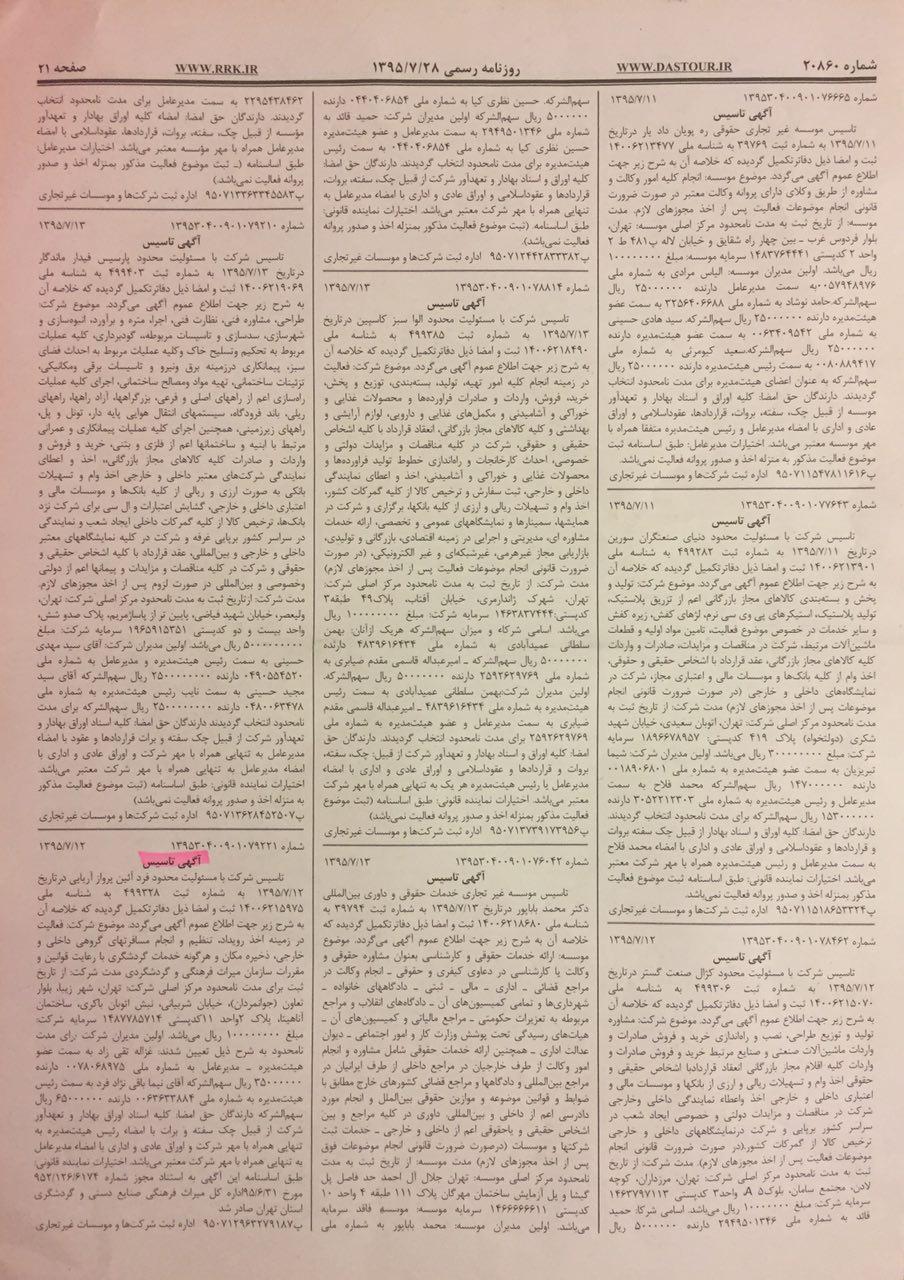 شماره ۲۰۸۶۰
WWW.DASTOUR.IR
روزنامه رسمی ۱۳۹۵/۷/۲۸
WWW.RRK.IR
صفحه ۲۱
شماره ۱۳۹۵۳۰۴۰۰۹۰۱۰۷۶۶۶۵ ۱۳۹۵/۷/۱۱
آگهی تاسیس
تاسیس موسسه غیر تجاری حقوقی ره پویان داد یار درتاریخ
۱۳۹۵/۷/۱۱ به شماره ثبت ۳۹۷۶۹ به شناسه ملی ۱۴۰۰۶۲۱۳۴۷۷
ثبت و امضا ذیل دفاترتکمیل گردیده که خلاصه آن به شرح زیر جهت
اطلاع عموم آگهی می‌گردد. موضوع موسسه: انجام کلیه امور وکالت و
مشاوره از طریق وکلای دارای پروانه وکالت معتبر در صورت ضرورت
قانونی انجام موضوعات فعالیت پس از اخذ مجوزهای لازم. مدت
موسسه: از تاریخ ثبت به مدت نامحدود مرکز اصلی موسسه: تهران،
بلوار فردوس غرب ـ بین چهار راه شقایق و خیابان لاله پ۴۸۱ ط ۲
واحد ۲ کدپستی ۱۴۸۳۷۶۴۴۴۱ سرمایه موسسه: مبلغ ۱۰۰۰۰۰۰۰۰
ریال می‌باشد. اولین مدیران موسسه: الیاس مرادی به شماره ملی
۰۰۵۷۹۴۸۹۷۶ به سمت مدیرعامل دارنده ۲۵۰۰۰۰۰۰ ریال
سهم‌الشرکه.حامد نوشاد به شماره ملی ۳۲۵۶۴۰۶۶۸۸ به سمت عضو
هیئت‌مدیره دارنده ۲۵۰۰۰۰۰۰ ریال سهم‌الشرکه. سید هادی حسینی
به شماره ملی ۰۰۶۳۴۰۹۵۴۲ به سمت عضو هیئت‌مدیره دارنده
۲۵۰۰۰۰۰۰ ریال سهم‌الشرکه.سعید کیومرثی به شماره ملی
۰۰۸۰۸۸۹۴۱۷ به سمت رئیس هیئت‌مدیره دارنده ۲۵۰۰۰۰۰۰ ریال
سهم‌الشرکه به عنوان اعضای هیئت‌مدیره برای مدت نامحدود انتخاب
گردیدند. دارندگان حق امضا: کلیه اوراق و اسناد بهادار و تعهدآور
موسسه از قبیل چک، سفته، بروات، قراردادها، عقوداسلامی و اوراق
عادی و اداری با امضاء مدیرعامل و رئیس هیئت‌مدیره متفقا همراه با
مهر موسسه معتبر می‌باشد. اختیارات مدیرعامل: طبق اساسنامه ثبت
موضوع فعالیت مذکور به منزله اخذ و صدور پروانه فعالیت نمی‌باشد.
پ۹۵۰۷۱۱۵۴۷۸۱۱۶۱۶ اداره ثبت شرکت‌ها و موسسات غیرتجاری
شماره ۱۳۹۵۳۰۴۰۰۹۰۱۰۷۷۶۴۳ ۱۳۹۵/۷/۱۱
آگهی تاسیس
تاسیس شرکت با مسئولیت محدود دنیای صنعتگران سورین
درتاریخ ۱۳۹۵/۷/۱۱ به شماره ثبت ۴۹۹۲۸۲ به شناسه ملی
۱۴۰۰۶۲۱۳۹۰۱ ثبت و امضا ذیل دفاترتکمیل گردیده که خلاصه آن
به شرح زیر جهت اطلاع عموم آگهی می‌گردد. موضوع شرکت: تولید و
پخش و بسته‌بندی کالاهای مجاز بازرگانی اعم از تزریق پلاستیک،
تولید پلاستیک، استیکرهای پی وی سی نرم، لژهای کفش، زیره کفش
و سایر خدمات در خصوص موضوع فعالیت، تامین مواد اولیه و قطعات
ماشین‌آلات مرتبط، شرکت در مناقصات و مزایدات، صادرات و واردات
کلیه کالاهای مجاز بازرگانی، عقد قرارداد با اشخاص حقیقی و حقوقی،
اخذ وام از کلیه بانک‌ها و موسسات مالی و اعتباری مجاز، شرکت در
نمایشگاه‌های داخلی و خارجی (در صورت ضرورت قانونی انجام
موضوعات پس از اخذ مجوزهای لازم) مدت شرکت: از تاریخ ثبت به
مدت نامحدود مرکز اصلی شرکت: تهران، اتوبان سعیدی، خیابان شهید
شکری (دولتخواه) پلاک ۴۱۹ کدپستی: ۱۸۹۶۶۷۸۹۵۷ سرمایه
شرکت: مبلغ ۳۰۰۰۰۰۰۰۰ ریال می‌باشد. اولین مدیران شرکت: شیما
تبریزیان به سمت عضو هیئت‌مدیره به شماره ملی ۰۰۱۸۹۰۶۸۰۱
دارنده ۱۴۷۰۰۰۰۰۰ ریال سهم‌الشرکه محمد فلاح به سمت
مدیرعامل و رئیس هیئت‌مدیره به شماره ملی ۳۰۵۲۲۱۲۳۰۳ دارنده
۱۵۳۰۰۰۰۰۰ ریال سهم‌الشرکه برای مدت نامحدود انتخاب گردیدند.
دارندگان حق امضا: کلیه اوراق و اسناد بهادار از قبیل چک سفته بروات
و قراردادها و عقوداسلامی و اوراق عادی و اداری با امضاء محمد فلاح
به سمت مدیرعامل و رئیس هیئت‌مدیره همراه با مهر شرکت معتبر
می‌باشد. اختیارات نماینده قانونی: طبق اساسنامه ثبت موضوع فعالیت
مذکور بمنزله اخذ و صدور پروانه فعالیت نمی‌باشد.
پ۹۵۰۷۱۱۵۱۸۶۵۳۳۲۴ اداره ثبت شرکت‌ها و موسسات غیرتجاری
شماره ۱۳۹۵۳۰۴۰۰۹۰۱۰۷۸۴۶۲ ۱۳۹۵/۷/۱۲
آگهی تاسیس
تاسیس شرکت با مسئولیت محدود کژال صنعت گستر درتاریخ
۱۳۹۵/۷/۱۲ به شماره ثبت ۴۹۹۳۰۶ به شناسه ملی
۱۴۰۰۶۲۱۵۰۷۰ ثبت و امضا ذیل دفاترتکمیل گردیده که خلاصه آن
به شرح زیر جهت اطلاع عموم آگهی می‌گردد. موضوع شرکت: مشاوره
تولید و توزیع طراحی، نصب و راه‌اندازی خرید و فروش صادرات و
واردات ماشین‌آلات صنعتی و صنایع مرتبط خرید و فروش صادرات و
واردات کلیه اقلام مجاز بازرگانی انعقاد قراردادبا اشخاص حقیقی و
حقوقی اخذ وام و تسهیلات ریالی و ارزی از بانکها و موسسات مالی و
اعتباری داخلی و خارجی اخذ واعطاء نمایندگی داخلی وخارجی
شرکت در مناقصات و مزایدات دولتی و خصوصی ایجاد شعب در
سراسر کشور برپایی و شرکت درنمایشگاههای داخلی و خارجی
ترخیص کالا از گمرکات کشور.(در صورت ضرورت قانونی انجام
موضوعات فعالیت پس از اخذ مجوزهای لازم). مدت شرکت: از تاریخ
ثبت به مدت نامحدود مرکز اصلی شرکت: تهران، مرزداران، کوچه
لادن، مجتمع سامان، بلوک۵ A واحد۳ کدپستی ۱۴۶۳۷۹۷۱۱۳
سرمایه شرکت: مبلغ ۱۰۰۰۰۰۰۰ ریال می‌باشد. اسامی شرکا: حمید
قائد به شماره ملی ۲۹۴۹۵۰۱۳۴۶ دارنده ۵۰۰۰۰۰۰ ریال
سهم‌الشرکه. حسین نظری کیا به شماره ملی ۰۴۴۰۴۰۶۸۵۴ دارنده
۵۰۰۰۰۰۰ ریال سهم‌الشرکه اولین مدیران شرکت: حمید قائد به
شماره ملی ۲۹۴۹۵۰۱۳۴۶ به سمت مدیرعامل و عضو هیئت‌مدیره
حسین نظری کیا به شماره ملی ۰۴۴۰۴۰۶۸۵۴ به سمت رئیس
هیئت‌مدیره برای مدت نامحدود انتخاب گردیدند. دارندگان حق امضا:
کلیه اوراق و اسناد بهادار و تعهدآور شرکت از قبیل چک، سفته، بروات،
قراردادها و عقوداسلامی و اوراق عادی و اداری با امضاء مدیرعامل به
تنهایی همراه با مهر شرکت معتبر می‌باشد. اختیارات نماینده قانونی:
طبق اساسنامه. (ثبت موضوع فعالیت مذکور بمنزله اخذ و صدور پروانه
فعالیت نمی‌باشد).
پ۹۵۰۷۱۲۴۴۲۸۳۳۳۸۲ اداره ثبت شرکت‌ها و موسسات غیرتجاری
شماره ۱۳۹۵۳۰۴۰۰۹۰۱۰۷۸۸۱۴ ۱۳۹۵/۷/۱۳
آگهی تاسیس
تاسیس شرکت با مسئولیت محدود الوا سبز کاسپین در‌تاریخ
۱۳۹۵/۷/۱۳ به شماره ثبت ۴۹۹۳۸۵ به شناسه ملی
۱۴۰۰۶۲۱۸۴۹۰ ثبت و امضا ذیل دفاترتکمیل گردیده که خلاصه آن
به شرح زیر جهت اطلاع عموم آگهی می‌گردد. موضوع شرکت: فعالیت
در زمینه انجام کلیه امور تهیه، تولید، بسته‌بندی، توزیع و پخش،
خرید، فروش، واردات و صادرات فراورده‌ها و محصولات غذایی و
خوراکی و آشامیدنی و مکمل‌های غذایی و دارویی، لوازم آرایشی و
بهداشتی و کلیه کالاهای مجاز بازرگانی، انعقاد قرارداد با کلیه اشخاص
حقیقی و حقوقی، شرکت در کلیه مناقصات و مزایدات دولتی و
خصوصی، احداث کارخانجات و راه‌اندازی خطوط تولید فراورده‌ها و
محصولات غذایی و خوراکی و آشامیدنی، اخذ و اعطای نمایندگی
داخلی و خارجی، ثبت سفارش و ترخیص کالا از کلیه گمرکات کشور،
اخذ وام و تسهیلات ریالی و ارزی از کلیه بانکها، برگزاری و شرکت در
همایشها، سمینارها و نمایشگاههای عمومی و تخصصی، ارائه خدمات
مشاوره ای، مدیریتی و اجرایی در زمینه اقتصادی، بازرگانی و تولیدی،
بازاریابی مجاز غیرهرمی، غیرشبکه‌ای و غیر الکترونیکی، (در صورت
ضرورت قانونی انجام موضوعات فعالیت پس از اخذ مجوزهای لازم)
مدت شرکت: از تاریخ ثبت به مدت نامحدود مرکز اصلی شرکت:
تهران، شهرک ژاندارمری، خیابان آفتاب، پلاک۴۹ طبقه۳
کدپستی:۱۴۶۳۸۳۷۴۴۴ سرمایه شرکت: مبلغ ۱۰۰۰۰۰۰۰ ریال
می‌باشد. اسامی شرکاء و میزان سهم‌الشرکه هریک ازآنان: بهمن
سلطانی عمیدآبادی به شماره ملی ۴۸۳۹۶۱۶۴۳۴ دارنده
۵۰۰۰۰۰۰ ریال سهم‌الشرکه ـ امیرعبداله قاسمی مقدم ضیابری به
شماره ملی ۲۵۹۲۶۲۹۷۶۹ دارنده ۵۰۰۰۰۰۰ ریال سهم‌الشرکه.
اولین مدیران شرکت:بهمن سلطانی عمیدآبادی به سمت رئیس
هیئت‌مدیره به شماره ملی ۴۸۳۹۶۱۶۴۳۴ ـ امیرعبداله قاسمی مقدم
ضیابری به سمت مدیرعامل و عضو هیئت‌مدیره به شماره ملی
۲۵۹۲۶۲۹۷۶۹ برای مدت نامحدود انتخاب گردیدند. دارندگان حق
امضا: کلیه اوراق و اسناد بهادار و تعهدآور شرکت از قبیل: چک، سفته،
بروات و قراردادها و عقوداسلامی و اوراق عادی و اداری با امضاء
مدیرعامل یا رئیس هیئت‌مدیره هر یک به تنهایی همراه با مهر شرکت
معتبر می‌باشد. اختیارات نماینده قانونی: طبق اساسنامه (ثبت موضوع
فعالیت مذکور بمنزله اخذ و صدور پروانه فعالیت نمی‌باشد).
پ۹۵۰۷۱۳۷۳۹۱۷۳۹۵۶ اداره ثبت شرکت‌ها و موسسات غیرتجاری
شماره ۱۳۹۵۳۰۴۰۰۹۰۱۰۷۶۰۴۲ ۱۳۹۵/۷/۱۳
آگهی تاسیس
تاسیس موسسه غیر تجاری خدمات حقوقی و داوری بین‌المللی
دکتر محمد باباپور درتاریخ ۱۳۹۵/۷/۱۳ به شماره ثبت ۳۹۷۹۴ به
شناسه ملی ۱۴۰۰۶۲۱۸۶۸۰ ثبت و امضا ذیل دفاترتکمیل گردیده که
خلاصه آن به شرح زیر جهت اطلاع عموم آگهی می‌گردد. موضوع
موسسه: ارائه خدمات حقوقی و کارشناسی بعنوان مشاوره حقوقی و
وکالت یا کارشناسی در دعاوی کیفری و حقوقی ـ انجام وکالت در
مراجع قضائی ـ اداری ـ مالی ـ ثبتی ـ دادگاههای خانواده ـ
شهرداری‌ها و تمامی کمیسیون‌های آن ـ دادگاه‌های انقلاب و مراجع
مربوطه به تعزیرات حکومتی ـ مراجع مالیاتی و کمیسیون‌های آن ـ
هیات‌های رسیدگی تحت پوشش وزارت کار و امور اجتماعی ـ دیوان
عدالت اداری ـ همچنین ارائه خدمات حقوقی شامل مشاوره و انجام
امور وکالت از طرف خارجیان در مراجع داخلی از طرف ایرانیان در
مراجع بین‌المللی و دادگاهها و مراجع قضائی کشورهای خارج مطابق با
ضوابط و قوانین موضوعه و موازین حقوقی بین‌الملل و انجام مورد
دادرسی اعم از داخلی و بین‌المللی. داوری در کلیه مراجع و بین
اشخاص حقیقی و یاحقوقی اعم از داخلی و خارجی ـ خدمات ثبت
شرکتها و موسسات (درصورت ضرورت قانونی انجام موضوعات فوق
پس از اخذ مجوزهای لازم) مدت موسسه: از تاریخ ثبت به مدت
نامحدود مرکز اصلی موسسه: تهران جلال آل احمد حد فاصل پل
گیشا و پل آزمایش ساختمان مهرگان پلاک ۱۱۱ طبقه ۴ واحد ۱۰
کدپستی ۱۴۶۶۶۶۶۶۱۱ سرمایه موسسه: موسسه فاقد سرمایه
می‌باشد. اولین مدیران موسسه: محمد باباپور به شماره ملی
۲۲۹۵۴۳۸۴۶۲ به سمت مدیرعامل برای مدت نامحدود انتخاب
گردیدند. دارندگان حق امضا: امضاء کلیه اوراق بهادار و تعهدآور
مؤسسه از قبیل چک، سفته، بروات، قراردادها، عقوداسلامی با امضاء
مدیرعامل همراه با مهر مؤسسه معتبر می‌باشد. اختیارات مدیرعامل:
طبق اساسنامه (ـ ثبت موضوع فعالیت مذکور بمنزله اخذ و صدور
پروانه فعالیت نمی‌باشد.)
پ۹۵۰۷۱۳۳۶۳۳۴۵۵۸۳ اداره ثبت شرکت‌ها و موسسات غیرتجاری
شماره ۱۳۹۵۳۰۴۰۰۹۰۱۰۷۹۲۱۰ ۱۳۹۵/۷/۱۳
آگهی تاسیس
تاسیس شرکت با مسئولیت محدود پارسیس فیدار ماندگار
درتاریخ ۱۳۹۵/۷/۱۳ به شماره ثبت ۴۹۹۴۰۳ به شناسه ملی
۱۴۰۰۶۲۱۹۰۶۹ ثبت و امضا ذیل دفاترتکمیل گردیده که خلاصه آن
به شرح زیر جهت اطلاع عموم آگهی می‌گردد. موضوع شرکت:
طراحی، مشاوره فنی، نظارت فنی، اجرا، متره و برآورد، انبوه‌سازی و
شهرسازی، سدسازی و تاسیسات مربوطه، گودبرداری، کلیه عملیات
مربوط به تحکیم وتسلیح خاک وکلیه عملیات مربوط به احداث فضای
سبز، پیمانکاری درزمینه برق ونیرو و تاسیسات برقی ومکانیکی،
تزئینات ساختمانی، تهیه مواد ومصالح ساختمانی، اجرای کلیه عملیات
راه‌سازی اعم از راههای اصلی و فرعی، بزرگراهها، آزاد راهها، راههای
ریلی، باند فرودگاه، سیستمهای انتقال هوایی پایه دار، تونل و پل،
راههای زیرزمینی، همچنین اجرای کلیه عملیات پیمانکاری و عمرانی
مرتبط با ابنیه و ساختمانها اعم از فلزی و بتنی، خرید و فروش و
واردات و صادرات کلیه کالاهای مجاز بازرگانی،، اخذ و اعطای
نمایندگی شرکت‌های معتبر داخلی و خارجی اخذ وام و تسهیلات
بانکی به صورت ارزی و ریالی از کلیه بانک‌ها و موسسات مالی و
اعتباری داخلی و خارجی، گشایش اعتبارات و ال سی برای شرکت نزد
بانک‌ها، ترخیص کالا از کلیه گمرکات داخلی ایجاد شعب و نمایندگی
در سراسر کشور برپایی غرفه و شرکت در کلیه نمایشگاههای معتبر
داخلی و خارجی و بین‌المللی، عقد قرارداد با کلیه اشخاص حقیقی و
حقوقی و شرکت در کلیه مناقصات و مزایدات و پیمانها اعم از دولتی
وخصوصی و بین‌المللی در صورت لزوم پس از اخذ مجوزهای لازم.
مدت شرکت: ازتاریخ ثبت به مدت نامحدود مرکز اصلی شرکت: تهران،
ولیعصر، خیابان شهید فیاضی، پایین تر از پاسازمریم، پلاک صدو شش،
واحد بیست و دو کدپستی ۱۹۶۵۹۱۵۳۵۱ سرمایه شرکت: مبلغ
۵۰۰۰۰۰۰۰۰ ریال می‌باشد. اولین مدیران شرکت: آقای سید مهدی
حسینی به سمت رئیس هیئت‌مدیره و مدیرعامل به شماره ملی
۰۴۹۰۵۵۴۵۲۰ دارنده ۲۵۰۰۰۰۰۰۰ ریال سهم‌الشرکه آقای سید
مجید حسینی به سمت نایب رئیس هیئت‌مدیره به شماره ملی
۰۴۸۰۰۶۳۴۷۸ دارنده ۲۵۰۰۰۰۰۰۰ ریال سهم‌الشرکه برای مدت
نامحدود انتخاب گردیدند دارندگان حق امضا: کلیه اسناد اوراق بهادار و
تعهدآور شرکت از قبیل چک سفته و برات قراردادها و عقود با امضاء
مدیرعامل به تنهایی همراه با مهر شرکت و اوراق عادی و اداری با
امضاء مدیرعامل به تنهایی همراه با مهر شرکت معتبر می‌باشد.
اختیارات نماینده قانونی: طبق اساسنامه (ثبت موضوع فعالیت مذکور
به منزله اخذ و صدور پروانه فعالیت نمی‌باشد)
پ۹۵۰۷۱۳۶۲۸۴۵۲۵۰۷ اداره ثبت شرکت‌ها و موسسات غیرتجاری
شماره ۱۳۹۵۳۰۴۰۰۹۰۱۰۷۹۲۲۱ ۱۳۹۵/۷/۱۲
آگهی تاسیس
تاسیس شرکت با مسئولیت محدود فرد آئین پرواز آریایی درتاریخ
۱۳۹۵/۷/۱۲ به شماره ثبت ۴۹۹۳۲۸ به شناسه ملی
۱۴۰۰۶۲۱۵۹۷۵ ثبت و امضا ذیل دفاترتکمیل گردیده که خلاصه آن
به شرح زیر جهت اطلاع عموم آگهی می‌گردد. موضوع شرکت: فعالیت
در زمینه اخذ رویداد، تنظیم و انجام مسافرتهای گروهی داخلی و
خارجی، ذخیره مکان و هرگونه خدمات گردشگری با رعایت قوانین و
مقررات سازمان میراث فرهنگی و گردشگری مدت شرکت: از تاریخ
ثبت برای مدت نامحدود مرکز اصلی شرکت: تهران، شهر زیبا، بلوار
تعاون (جوانمردان)، خیابان شربیانی، نبش اتوبان باکری، ساختمان
آناهیتا، پلاک ۲واحد ۱۱کدپستی ۱۴۸۷۷۸۵۷۱۴ سرمایه شرکت:
مبلغ ۱۰۰۰۰۰۰۰۰ ریال می‌باشد. اولین مدیران شرکت برای مدت
نامحدود به شرح ذیل تعیین شدند: غزاله تقی زاد به سمت عضو
هیئت‌مدیره ـ مدیرعامل به شماره ملی ۰۰۷۸۰۶۸۹۷۵ دارنده
۳۵۰۰۰۰۰۰ ریال سهم‌الشرکه آقای نیما باقی نژاد فرد به سمت رئیس
هیئت‌مدیره به شماره ملی ۰۰۶۳۶۳۳۸۸۴ دارنده ۶۵۰۰۰۰۰۰ ریال
سهم‌الشرکه دارندگان حق امضا: کلیه اسناد اوراق بهادار و تعهدآور
شرکت از قبیل چک سفته و برات با امضاء رئیس هیئت‌مدیره به
تنهایی همراه با مهر شرکت و اوراق عادی و اداری با امضاء مدیرعامل
به تنهایی همراه با مهر شرکت معتبر می‌باشد. اختیارات نماینده قانونی:
طبق اساسنامه این آگهی به استناد مجوز شماره ۹۵۲/۱۲۶/۶۱۷۴
مورخ ۹۵/۶/۳۱اداره کل میراث فرهنگی صنایع دستی و گردشگری
استان تهران صادر شد
پ۹۵۰۷۱۲۹۶۳۲۷۹۱۸۷ اداره ثبت شرکت‌ها و موسسات غیرتجاری